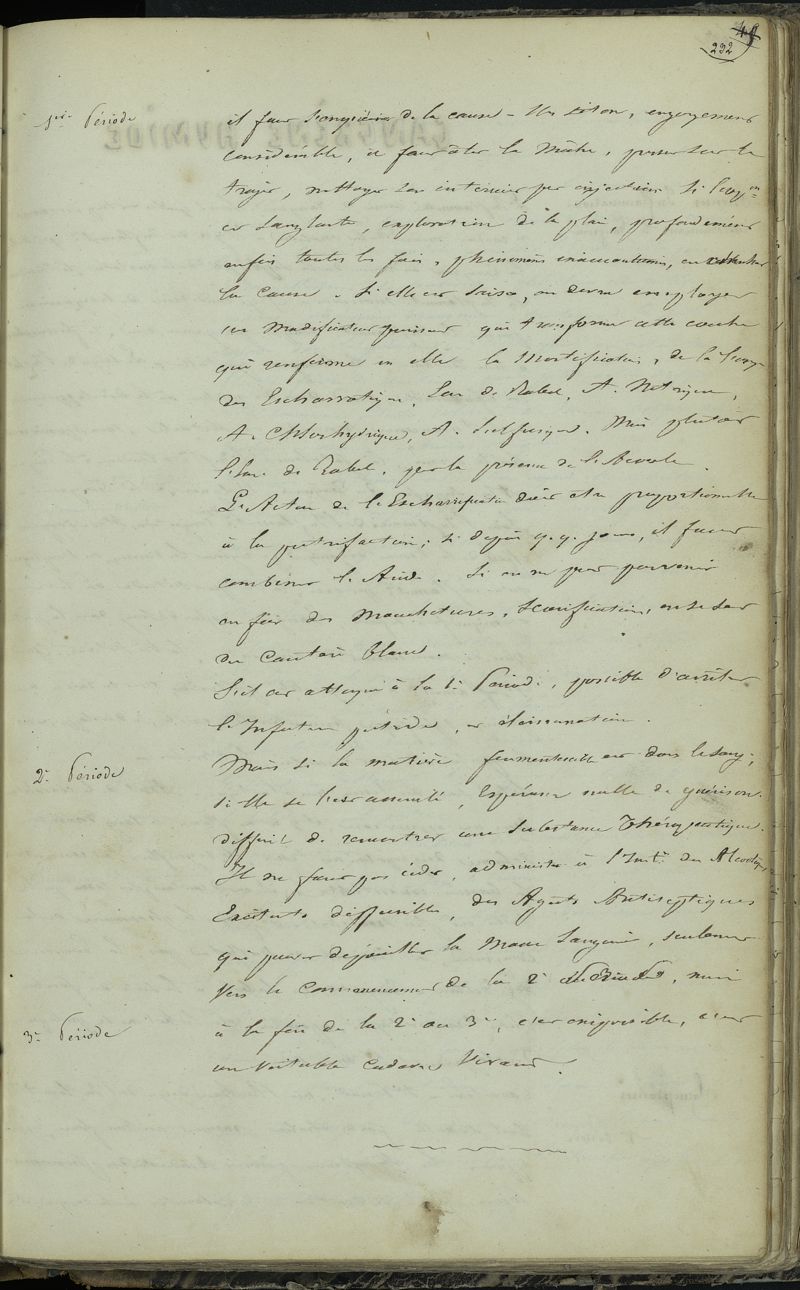 292
1ère Période
il faut s'enquérir de la cause - Un séton, engorgement
considérable, il faut ôter la Mèche, presser sur le
trajet, nettoyer son intérieur par injections. Si l'eng.nt
est sanglante, exploration de la plaie, profondément
enfin toutes les fois, phénomènes inaccoutumés, en rechercher
la cause. Si elle est saisie, on devra employer
un Modificateur puissant qui transforme cette couche
qui renferme en elle la Mortification, de la
des Escharrotiques, Eau de Rabel, A. Nitrique,
A. Chlorhydrique, A. Sulfurique. Mais plutôt
l'Eau de Rabel, par la présence de l'Alcool.
L'Action de l'Escharrification doit être proportionnelle
à la putréfaction; si depuis q.q. jours, il faut
combiner l'Acide. Si on ne peut parvenir
on fait des Mouchetures, Scarifications, on se sert
du Cautère blanc.
S'il est attaqué à la 1e Période, possible d'arrêter
l'Infection putride, et élimination.
2e Période
Mais si la matière fermentescible est dans le sang,
si elle se l'est assimilé, Espérance nulle de guérison.
difficile de rencontrer une substance Thérapeutique.
Il ne faut pas céder, administrer à l'Int. des Alcooliques
Excitants diffusibles, des Agents Antiseptiques
qui peuvent dépouiller la Masse Sanguine, seulement
Vers le Commencement de la 2e Période, mais
3e Période
à la fin de la 2e ou 3e, c'est impossible, c'est
un véritable cadavre Vivant.